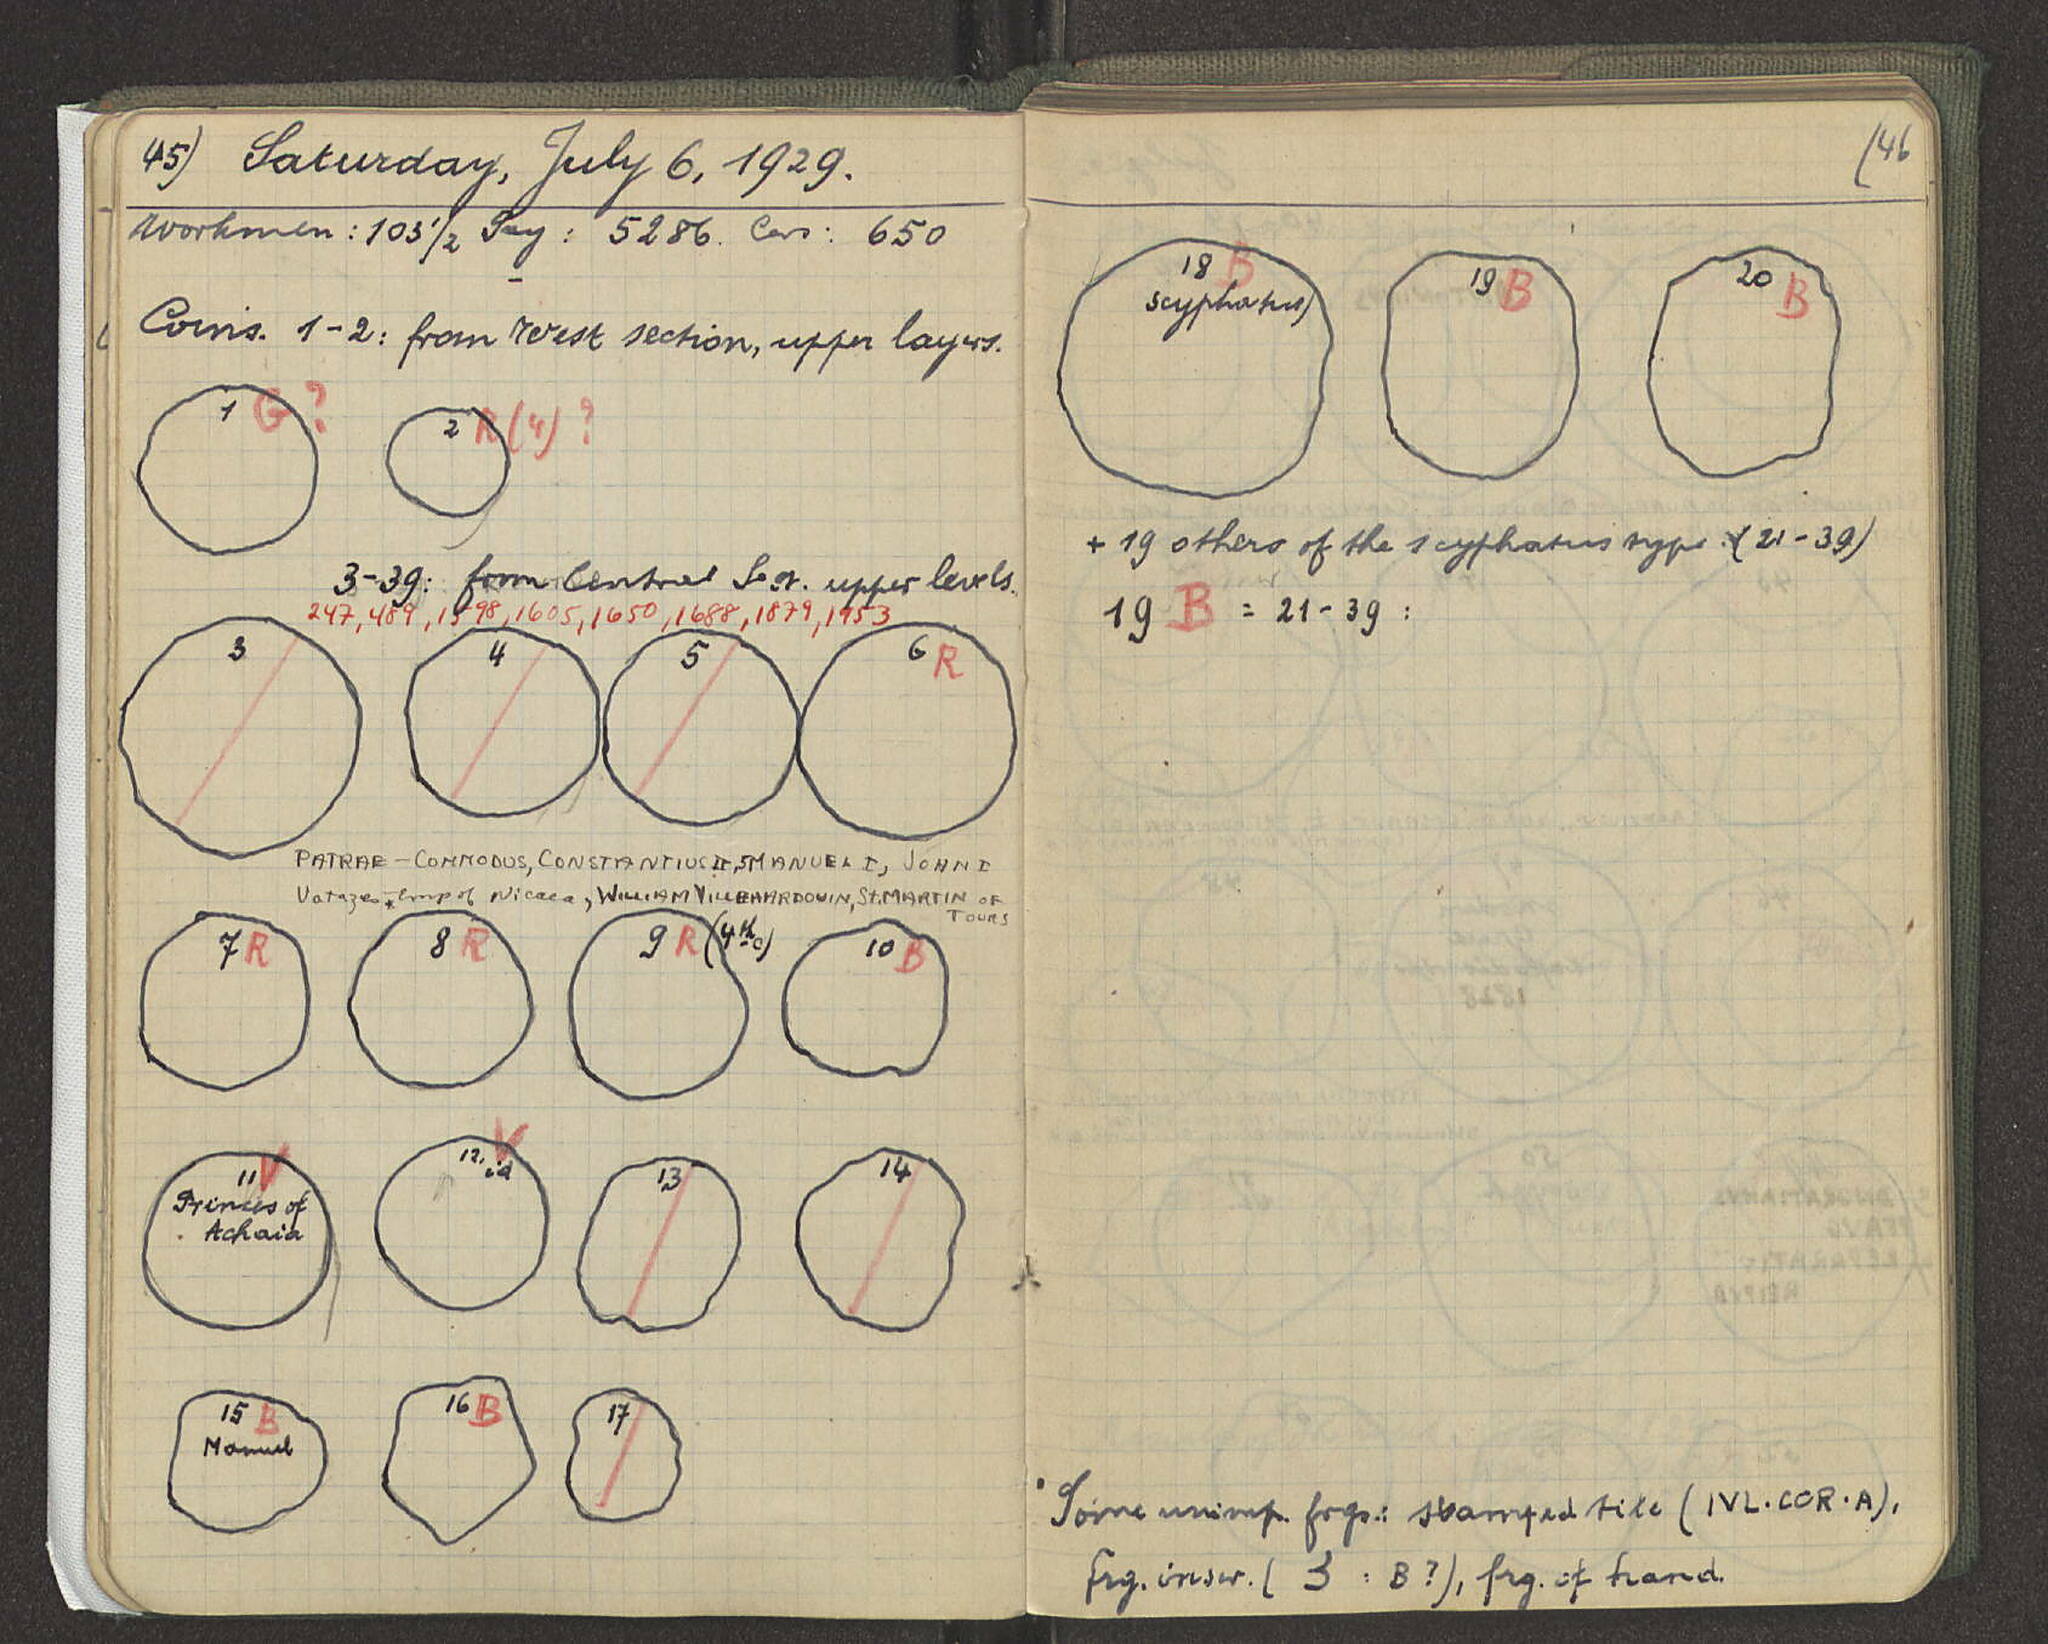 45) Saturday, July 6, 1929.
Workmen: 103 1/2 Pay: 5286. Cars: 650
Coins. 1-2: from West section, upper layers.
1 G?
2 R(4)?
3-39: from Central Sect. upper levels.
247, 489, 1598, 1605, 1650, 1688, 1879, 1953
3
4
5
6 R
PATRAE - COMMODUS, CONSTANTIUS II, MANUEL I, JOHN I
Vatazes - Emp of Nicaea, WILLIAM VILLEHARDOUIN, St. MARTIN OF
TOURS
7 R
8 R
9 R (4th c)
10 B
11 V
Princes of
Achaia
12. id V
13
14
15 B
Manuel
16 B
17
(46
18 B
scyphatus
19 B
20 B
+ 19 others of the scyphatus type. (21-39)
19 B = 21-39:
Some unimp. frgs.: stamped tile (IVL·COR·A),
frg. inscr. ( 3 : B?), frg. of hand.